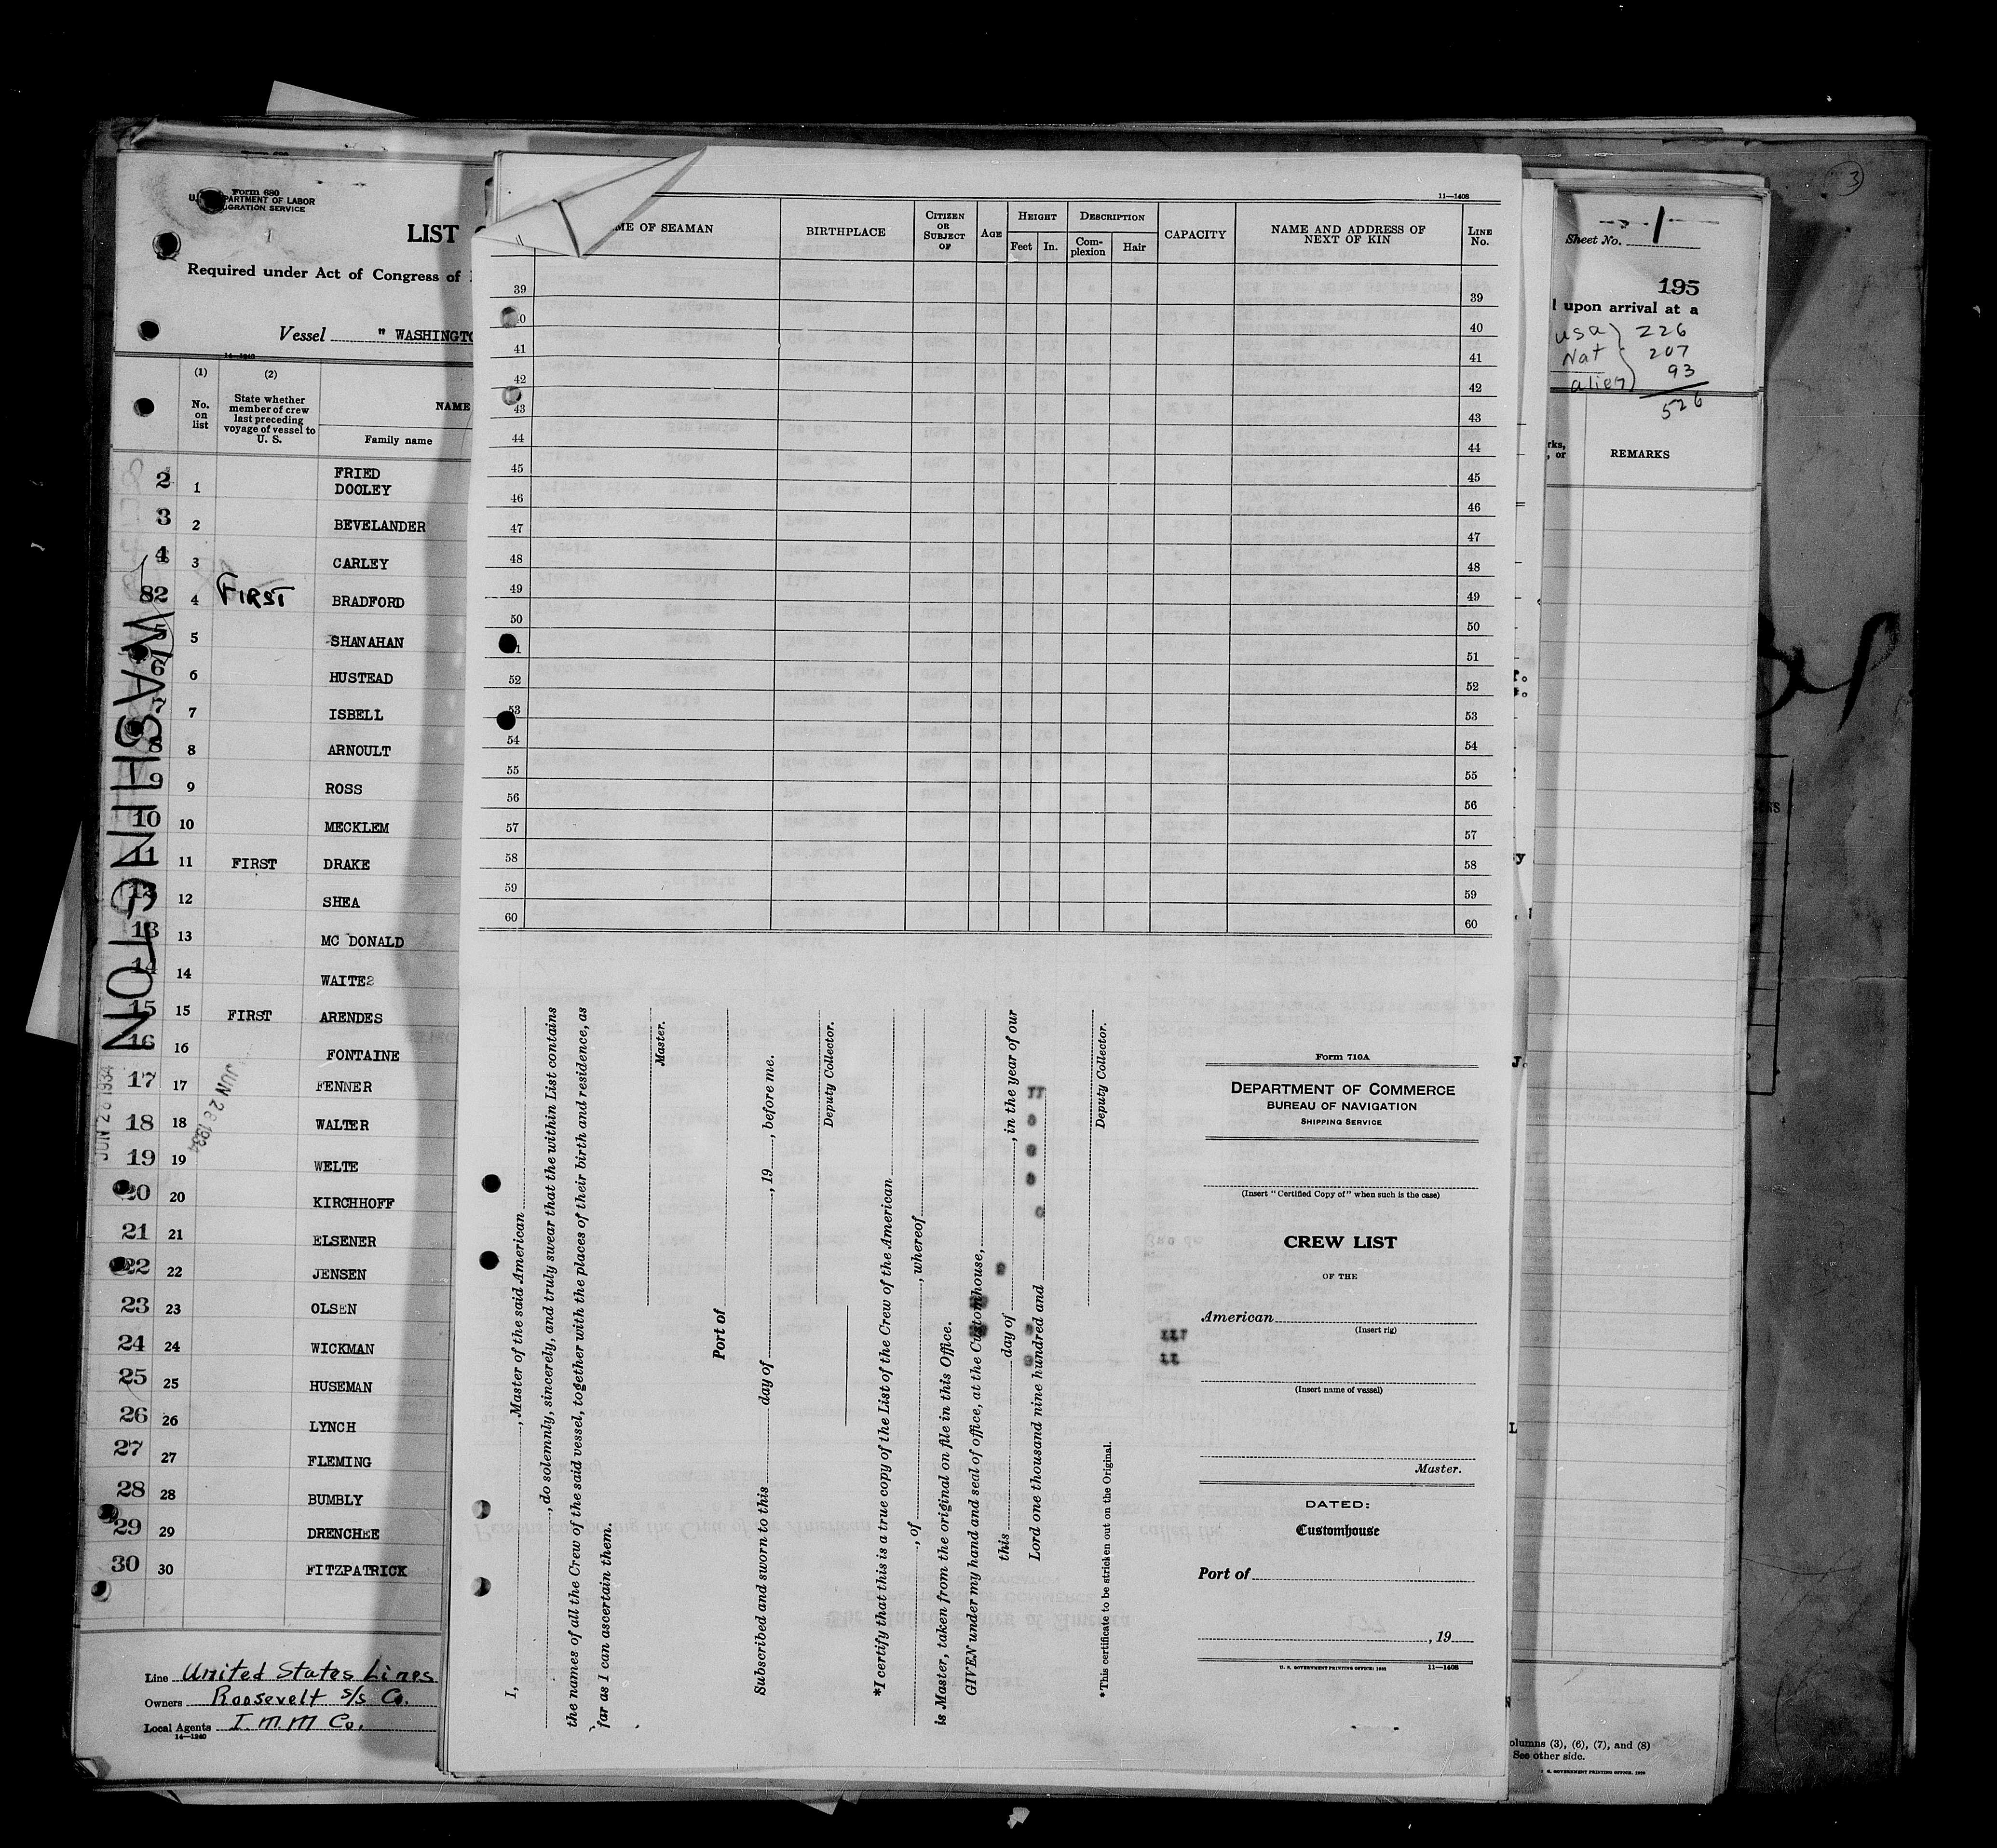 Form 680
DEPARTMENT OF LABOR
IMMIGRATION SERVICE
LIST
Required under Act of Congress of
Vessel " WASHINGTO
14—1240
(1) (2)
No. on list
State whether member of crew last preceding voyage of vessel to U. S.
NAME
Family name
FRIED
2 1 DOOLEY
3 2 BEVELANDER
4 3 CARLEY
82 4 FIRST BRADFORD
5 SHANAHAN
6 6 HUSTEAD
7 7 ISBELL
8 8 ARNOULT
9 9 ROSS
10 10 MECKLEM
11 11 FIRST DRAKE
12 12 SHEA
13 13 MC DONALD
14 14 WAITE
15 15 FIRST ARENDES
16 16 FONTAINE
17 17 FENNER
18 18 WALTER
19 19 WELTE
20 20 KIRCHHOFF
21 21 ELSENER
22 22 JENSEN
23 23 OLSEN
24 24 WICKMAN
25 25 HUSEMAN
26 26 LYNCH
27 27 FLEMING
28 28 BUMBLY
29 29 DRENCHEE
30 30 FITZPATRICK
WASHINGTON
JUN 28 1934
JUN 28 1934
Line United States Lines
Owners Roosevelt s/s Co.
Local Agents I.M.M Co.
14—1240
11—1408
ME OF SEAMAN
BIRTHPLACE
CITIZEN OR SUBJECT OF
AGE
HEIGHT
Feet In.
DESCRIPTION
Com-plexion Hair
CAPACITY
NAME AND ADDRESS OF NEXT OF KIN
LINE No.
39 39
40 40
41 41
42 42
43 43
44 44
45 45
46 46
47 47
48 48
49 49
50 50
51 51
52 52
53 53
54 54
55 55
56 56
57 57
58 58
59 59
60 60
I, , Master of the said American
, do solemnly, sincerely, and truly swear that the within List contains
the names of all the Crew of the said vessel, together with the places of their birth and residence, as
far as I can ascertain them.
Master.
Port of
Subscribed and sworn to this day of , 19 , before me.
Deputy Collector.
*I certify that this is a true copy of the List of the Crew of the American
, of , whereof
is Master, taken from the original on file in this Office.
GIVEN under my hand and seal of office, at the Customhouse,
this day of , in the year of our
Lord one thousand nine hundred and
Deputy Collector.
*This certificate to be stricken out on the Original.
Form 710A
DEPARTMENT OF COMMERCE
BUREAU OF NAVIGATION
SHIPPING SERVICE
(Insert "Certified Copy of" when such is the case)
CREW LIST
OF THE
American
(Insert rig)
(Insert name of vessel)
Master.
DATED:
Customhouse
Port of
, 19
U. S. GOVERNMENT PRINTING OFFICE: 11—1408
3
Sheet No. 1
195
l upon arrival at a
usa 226
Nat 207
alien 93
526
rks, or
REMARKS
olumns (3), (6), (7), and (8)
See other side.
GOVERNMENT PRINTING OFFICE